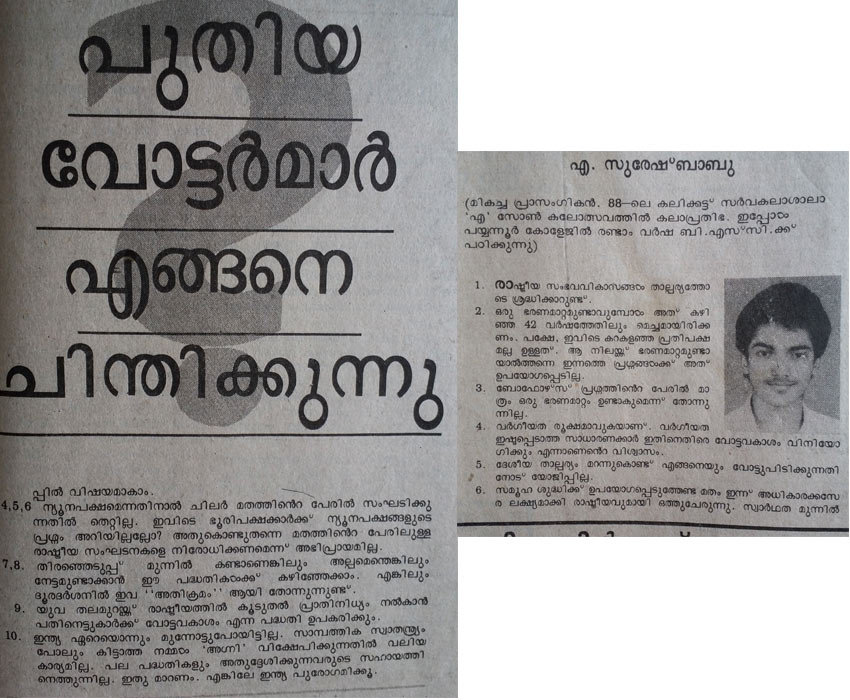 പുതിയ
വോട്ടർമാർ
എങ്ങനെ
ചിന്തിക്കുന്നു
പ്പിൽ വിഷയമാകാം.
4,5,6 ന്യൂനപക്ഷമെന്നതിനാൽ ചിലർ മതത്തിൻെറ പേരിൽ സംഘടിക്കു
ന്നതിൽ തെറ്റില്ല. ഇവിടെ ഭൂരിപക്ഷക്കാർക്ക് ന്യൂനപക്ഷങ്ങളുടെ
പ്രശ്നം അറിയില്ലല്ലോ? അതുകൊണ്ടുതന്നെ മതത്തിൻെറ പേരിലുള്ള
രാഷ്ട്രീയ സംഘടനകളെ നിരോധിക്കണമെന്ന് അഭിപ്രായമില്ല.
7,8. തിരഞ്ഞെടുപ്പ് മുന്നിൽ കണ്ടാണെങ്കിലും അല്പമെന്തെങ്കിലും
നേട്ടമുണ്ടാക്കാൻ ഈ പദ്ധതികൾക്ക് കഴിഞ്ഞേക്കാം. എങ്കിലും
ദൂരദർശനിൽ ഇവ ''അതിക്രമം'' ആയി തോന്നുന്നുണ്ട്.
9. യുവ തലമുറയ്ക്ക് രാഷ്ട്രീയത്തിൽ കൂടുതൽ പ്രാതിനിധ്യം നൽകാൻ
പതിനെട്ടുകാർക്ക് വോട്ടവകാശം എന്ന പദ്ധതി ഉപകരിക്കും.
10. ഇന്ത്യ ഏറെയൊന്നും മുന്നോട്ടുപോയിട്ടില്ല. സാമ്പത്തിക സ്വാതന്ത്ര്യം
പോലും കിട്ടാത്ത നമ്മൾ 'അഗ്നി' വിക്ഷേപിക്കുന്നതിൽ വലിയ
കാര്യമില്ല. പല പദ്ധതികളും അതുദ്ദേശിക്കുന്നവരുടെ സഹായത്തി
നെത്തുന്നില്ല. ഇതു മാറണം. എങ്കിലേ ഇന്ത്യ പുരോഗമിക്കൂ.
എ. സുരേഷ്ബാബു
(മികച്ച പ്രാസംഗികൻ. 88—ലെ കലിക്കട്ട് സർവകലാശാലാ
'എ' സോൺ കലോത്സവത്തിൽ കലാപ്രതിഭ. ഇപ്പോൾ
പയ്യന്നൂർ കോളേജിൽ രണ്ടാം വർഷ ബി.എസ്‌സി.ക്ക്
പഠിക്കുന്നു)
1. രാഷ്ട്രീയ സംഭവവികാസങ്ങൾ താല്പര്യത്തോ
ടെ ശ്രദ്ധിക്കാറുണ്ട്.
2. ഒരു ഭരണമാറ്റമുണ്ടാവുമ്പോൾ അത് കഴി
ഞ്ഞ 42 വർഷത്തേതിലും മെച്ചമായിരിക്ക
ണം. പക്ഷേ, ഇവിടെ കറകളഞ്ഞ പ്രതിപക്ഷ
മല്ല ഉള്ളത്. ആ നിലയ്ക്ക് ഭരണമാറ്റമുണ്ടാ
യാൽത്തന്നെ ഇന്നത്തെ പ്രശ്നങ്ങൾക്ക് അത്
ഉപയോഗപ്പെടില്ല.
3. ബോഫോഴ്സ് പ്രശ്നത്തിൻെറ പേരിൽ മാ
ത്രം ഒരു ഭരണമാറ്റം ഉണ്ടാകുമെന്ന് തോന്നു
ന്നില്ല.
4. വർഗീയത രൂക്ഷമാവുകയാണ്. വർഗീയത
ഇഷ്ടപ്പെടാത്ത സാധാരണക്കാർ ഇതിനെതിരെ വോട്ടവകാശം വിനിയോ
ഗിക്കും എന്നാണെൻെറ വിശ്വാസം.
5. ദേശീയ താല്പര്യം മറന്നുകൊണ്ട് എങ്ങനെയും വോട്ടുപിടിക്കുന്നതി
നോട് യോജിപ്പില്ല.
6. സമൂഹ ശുദ്ധിക്ക് ഉപയോഗപ്പെടുത്തേണ്ട മതം ഇന്ന് അധികാരക്കസേ
ര ലക്ഷ്യമാക്കി രാഷ്ട്രീയവുമായി ഒത്തുചേരുന്നു. സ്വാർഥത മുന്നിൽ